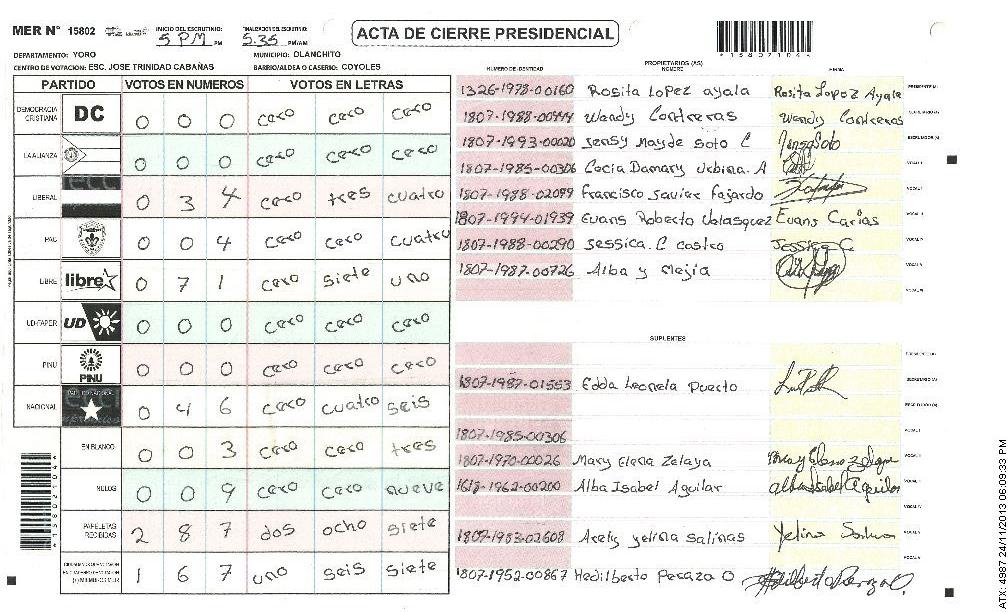 MER N° 15802
INICIO DEL ESCRUTINIO: 5 PM PM
FINALIZACION DEL ESCRUTINIO: 5.35 PM/AM
ACTA DE CIERRE PRESIDENCIAL
*15802104*
DEPARTAMENTO: YORO
MUNICIPIO: OLANCHITO
CENTRO DE VOTACION: ESC. JOSE TRINIDAD CABAÑAS
BARRIO/ALDEA O CASERIO: COYOLES
PARTIDO VOTOS EN NUMEROS VOTOS EN LETRAS
DEMOCRACIA CRISTIANA DC 0 0 0 cero cero cero
LA ALIANZA 0 0 0 cero cero cero
LIBERAL 0 3 4 cero tres cuatro
PAC 0 0 4 cero cero cuatro
LIBRE libre 0 7 1 cero siete uno
UD-FAPER UD 0 0 0 cero cero cero
PINU PINU 0 0 0 cero cero cero
NACIONAL 0 4 6 cero cuatro seis
EN BLANCO 0 0 3 cero cero tres
NULOS 0 0 9 cero cero nueve
PAPELETAS RECIBIDAS 2 8 7 dos ocho siete
1 6 7 uno seis siete
NUMERO DE IDENTIDAD
PROPIETARIOS (AS)
NOMBRE
FIRMA
1326-1978-00160 Rosita Lopez ayala Rosita Lopez Ayala PRESIDENTE (A)
1807-1988-00444 Wandy Contreras Wendy Contreras SECRETARIO (A)
1807-1993-00020 Jensy Mayde Soto C ESCRUTADOR (A)
1807-1985-00306 Cecia Damary Urbina. A VOCAL I
1807-1988-02099 Francisco Javier Fajardo
1807-1994-01939 Evans Roberto Velasquez Evans Carias
1807-1988-00290 Jessica. C castro Jessica C.
1807-1987-00726 Alba y Mejia
SUPLENTES
1807-1987-01553 Edda Leonela Puerto SECRETARIO (A)
1807-1985-00306
1807-1970-00026 Mary Elena Zelaya
1618-1962-00200 Alba Isabel Aguilar alba Isabel Aguilar
1807-1983-02608 Arely yelina salinas Yelina Salinas
1807-1952-00867 Hedilberto Peraza O
ATX: 4987 24/11/2013 06:09:33 PM
*15802104*